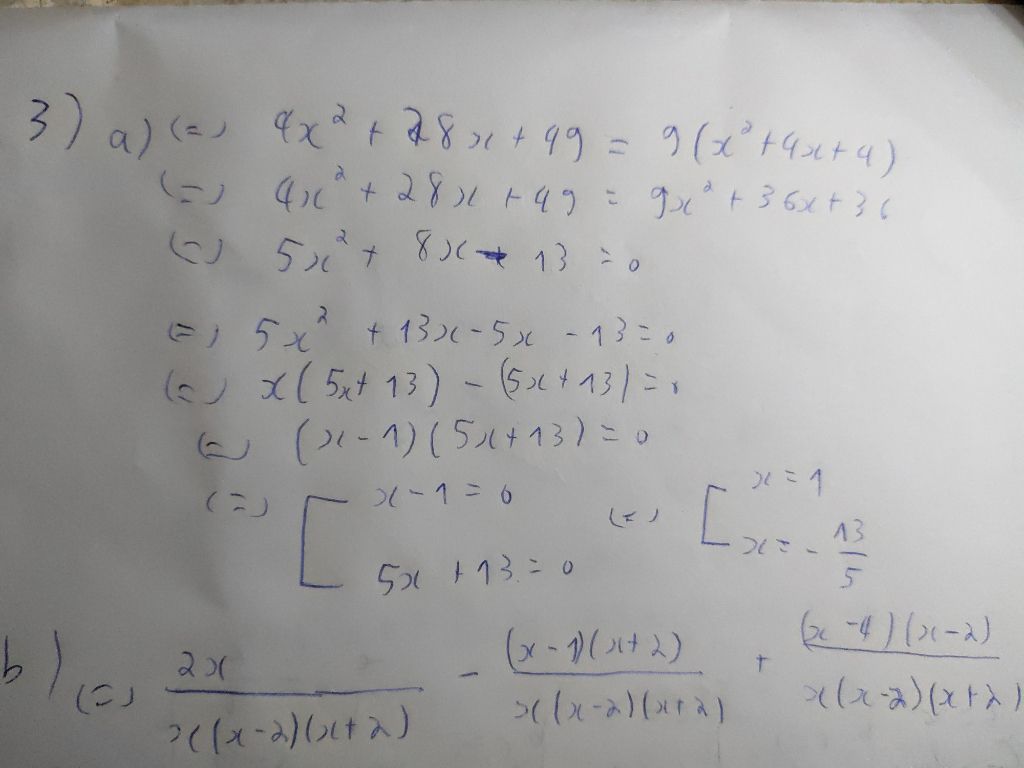 3) a) (=) 4x² + 28x + 49 = 9(x² + 4x + 4)
(=) 4x² + 28x + 49 = 9x² + 36x + 36
(=) 5x² + 8x - 13 = 0
(=) 5x² + 13x - 5x - 13 = 0
(=) x(5x + 13) - (5x + 13) = 0
(=) (x - 1)(5x + 13) = 0
(=) [ x - 1 = 0 (=) [ x = 1
5x + 13 = 0 x = - 13/5
b) (=) 2x/x(x-2)(x+2) - (x-1)(x+2)/x(x-2)(x+2) + (x-4)(x-2)/x(x-2)(x+2)